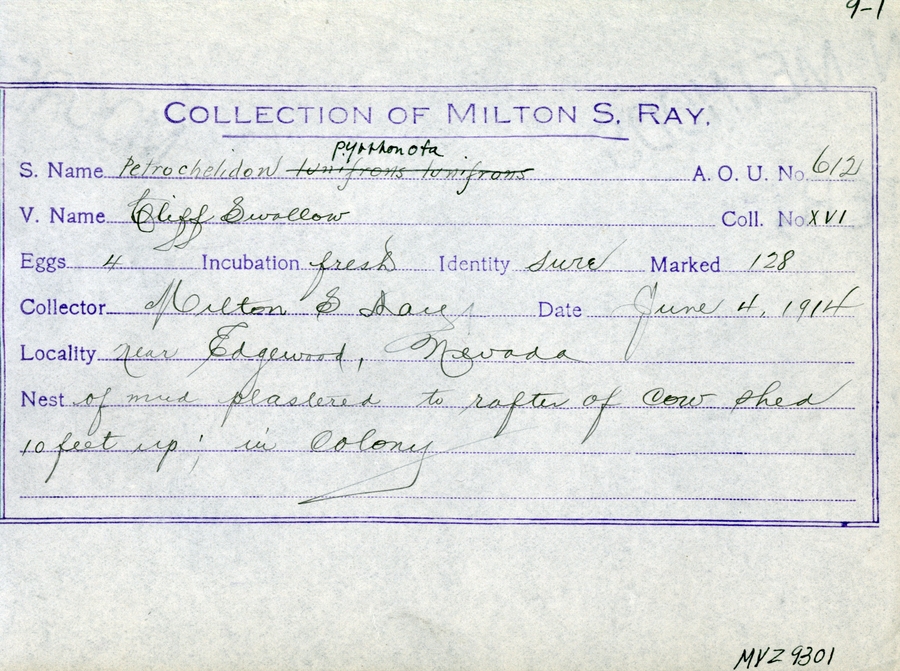 9-1
COLLECTION OF MILTON S. RAY.
pyrrhonota
S. Name Petrochelidon lunifrons lunifrons A. O. U. No. 612
V. Name Cliff Swallow Coll. No. XVI
Eggs 4 Incubation fresh Identity sure Marked 128
Collector Milton S Ray Date June 4, 1914
Locality near Edgewood, Nevada
Nest of mud plastered to rafter of cow shed
10 feet up; in Colony
MVZ 9301